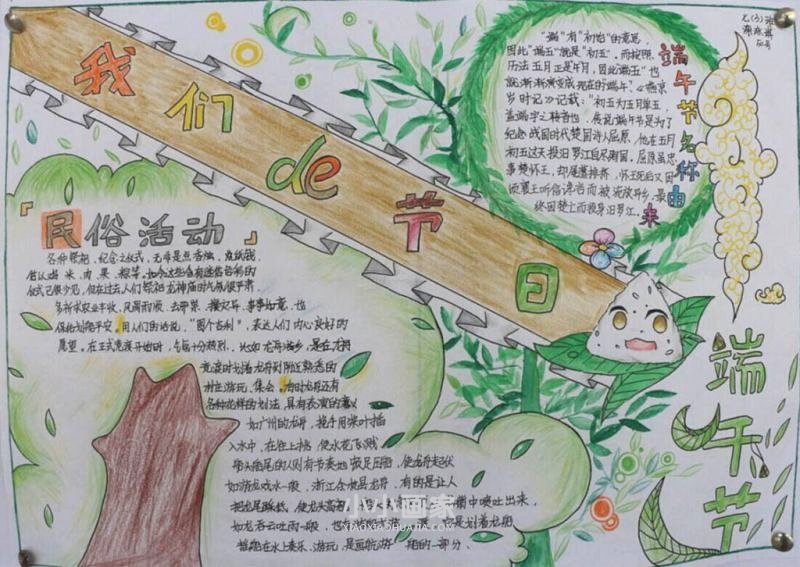 我们de节日
"端"有"初始"的意思,
因此"端五"就是"初五"。而按照
历法五月正是午月,因此"端五"也
就渐渐演变成现在的"端午"。《燕京
岁时记》记载:"初五为五月单五,
盖端字之转音也。
纪念战国时代楚国诗人屈原,他在五月
初五这天投汨罗江自尽殉国。屈原虽忠
事楚怀王,却屡遭排挤,怀王死后又因
顷襄王听信谗言而被流放异乡,最
终因楚亡而投身汨罗江。
端午节名称由来
民俗活动
各种祭祀、纪念之仪式,无非是点香烛,烧纸钱,
米、肉、果、粽等。如今这些含有迷信色彩的
仪式已很少见,但在过去人们祭祀龙神庙时气氛很严肃,
多祈求农业丰收、风调雨顺、去邪祟、攘灾异、事事如意,也
保佑划船平安。用人们的话说,"图个吉利",表达人们内心良好的
愿望。在正式竞渡开始时,气氛十分热烈。
竞渡时划着龙舟到附近熟悉的
村庄游玩、集会。有时龙舟还有
各种花样的划法,具有表演的意义
如广州的龙舟,挽手用桨叶插
入水中,在往上挑,使水花飞溅
船头船尾的人则有节奏地顿足压船,使龙舟起伏
如游龙戏水一般。浙江余杭县龙舟,有的是让人
把龙尾踩低,使龙头高翘 中喷吐出来,
如龙吞云吐雨一般,也 是划着龙船
端午节
小小画家
XIAOXIAOHUAJIA.COM